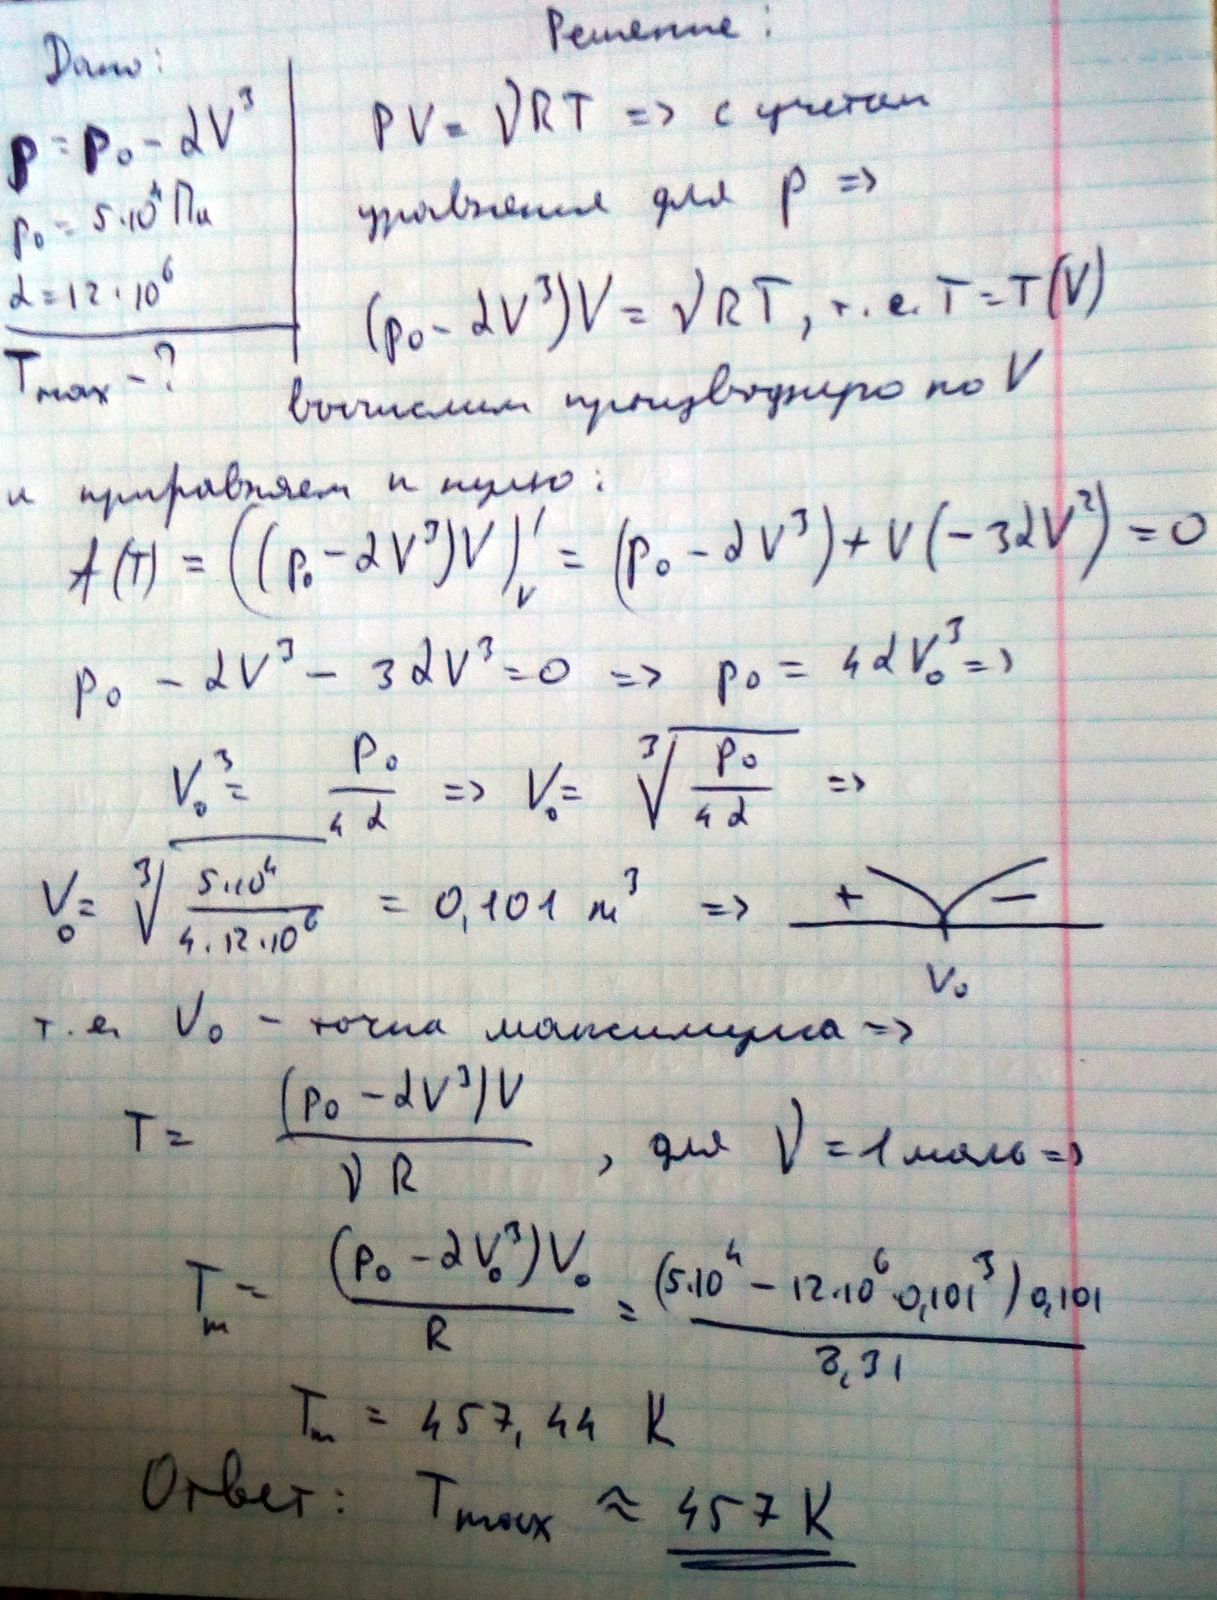 Дано:
p = p₀ - αV³
p₀ = 5·10⁴ Па
α = 12·10⁶
Tmax - ?
Решение:
PV = νRT => с учетом
уравнения для p =>
(p₀ - αV³)V = νRT, т.е. T = T(V)
вычислим производную по V
и приравняем к нулю:
f'(T) = ((p₀ - αV³)V)'ᵥ = (p₀ - αV³) + V(-3αV²) = 0
p₀ - αV³ - 3αV³ = 0 => p₀ = 4αV₀³ =>
V₀³ = p₀/4α => V₀ = ∛(p₀/4α) =>
V₀ = ∛(5·10⁴/4·12·10⁶) = 0,101 m³ => + -
V₀
т.е. V₀ - точка максимума =>
T = (p₀ - αV³)V/νR, для ν = 1 моль =>
Tm = (p₀ - αV₀³)V₀/R = (5·10⁴ - 12·10⁶·0,101³)0,101/8,31
Tm = 457,44 K
Ответ: Tmax ≈ 457 K